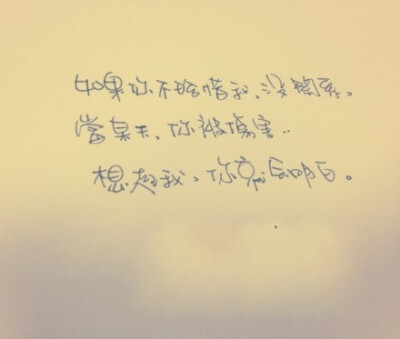 如果你不珍惜我、沒關系。
當某天、你被傷害..
想起我、你就會明白。